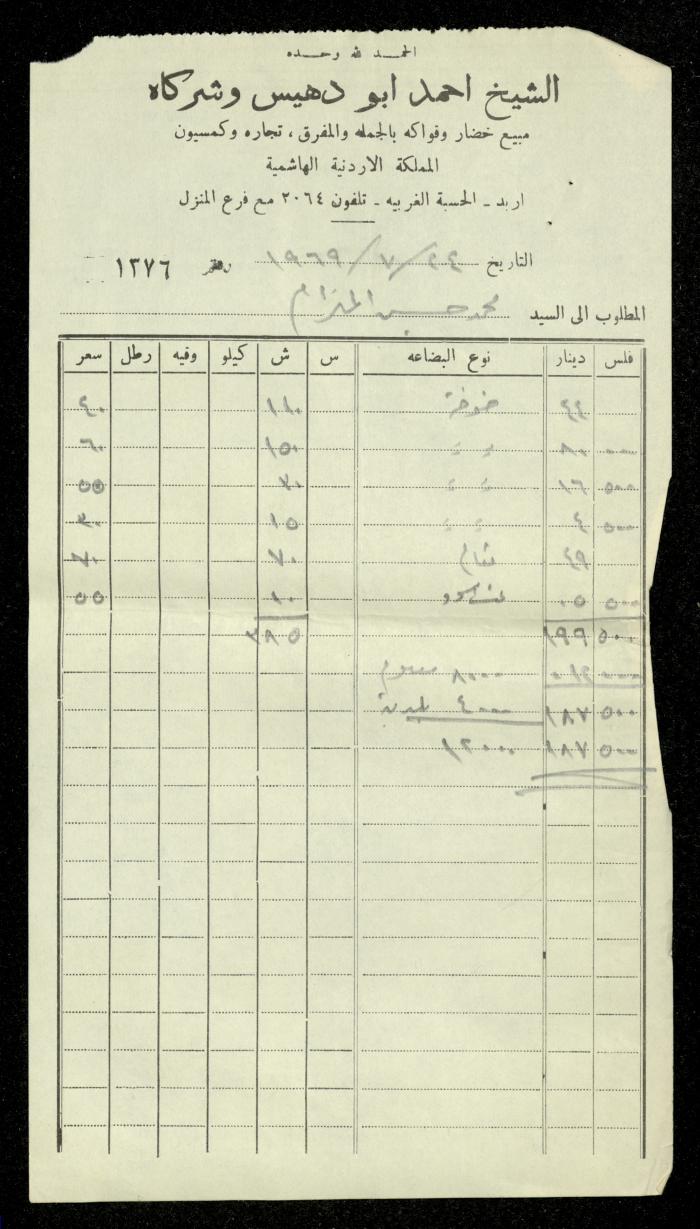 الحمد لله وحده
الشيخ احمد ابو دهيس وشركاه
مبيع خضار وفواكه بالجمله والمفرق ، تجاره وكمسيون
المملكة الاردنية الهاشمية
اربد ـ الحسبة الغربيه ـ تلفون ٢٠٦٤ مع فرع المنزل
التاريخ ٢٤/٧/١٩٦٩ رقم ١٣٧٦
المطلوب الى السيد محمد حسين
فلس دينار نوع البضاعه س ش كيلو وقيه رطل سعر
٤٤ خوخ ١١٠ ٤٠
٠٠٠ ٨٠ 〃 〃 ١٥٠ ٦٠
٥٠٠ ١٦ 〃 〃 ٣٠ ٥٥
٥٠٠ ٤ 〃 〃 ١٥ ٣٠
٤٩ تفاح ٧٠ ٧٠
٥٠٠ ٠٥ ١٠ ٥٥
٥٠٠ ١٩٩ ٣٨٥
٠٠٠ ٠١٢ ٨٠٠٠
٥٠٠ ١٨٧ ٤٠٠٠
٥٠٠ ١٨٧ ١٢٠٠٠